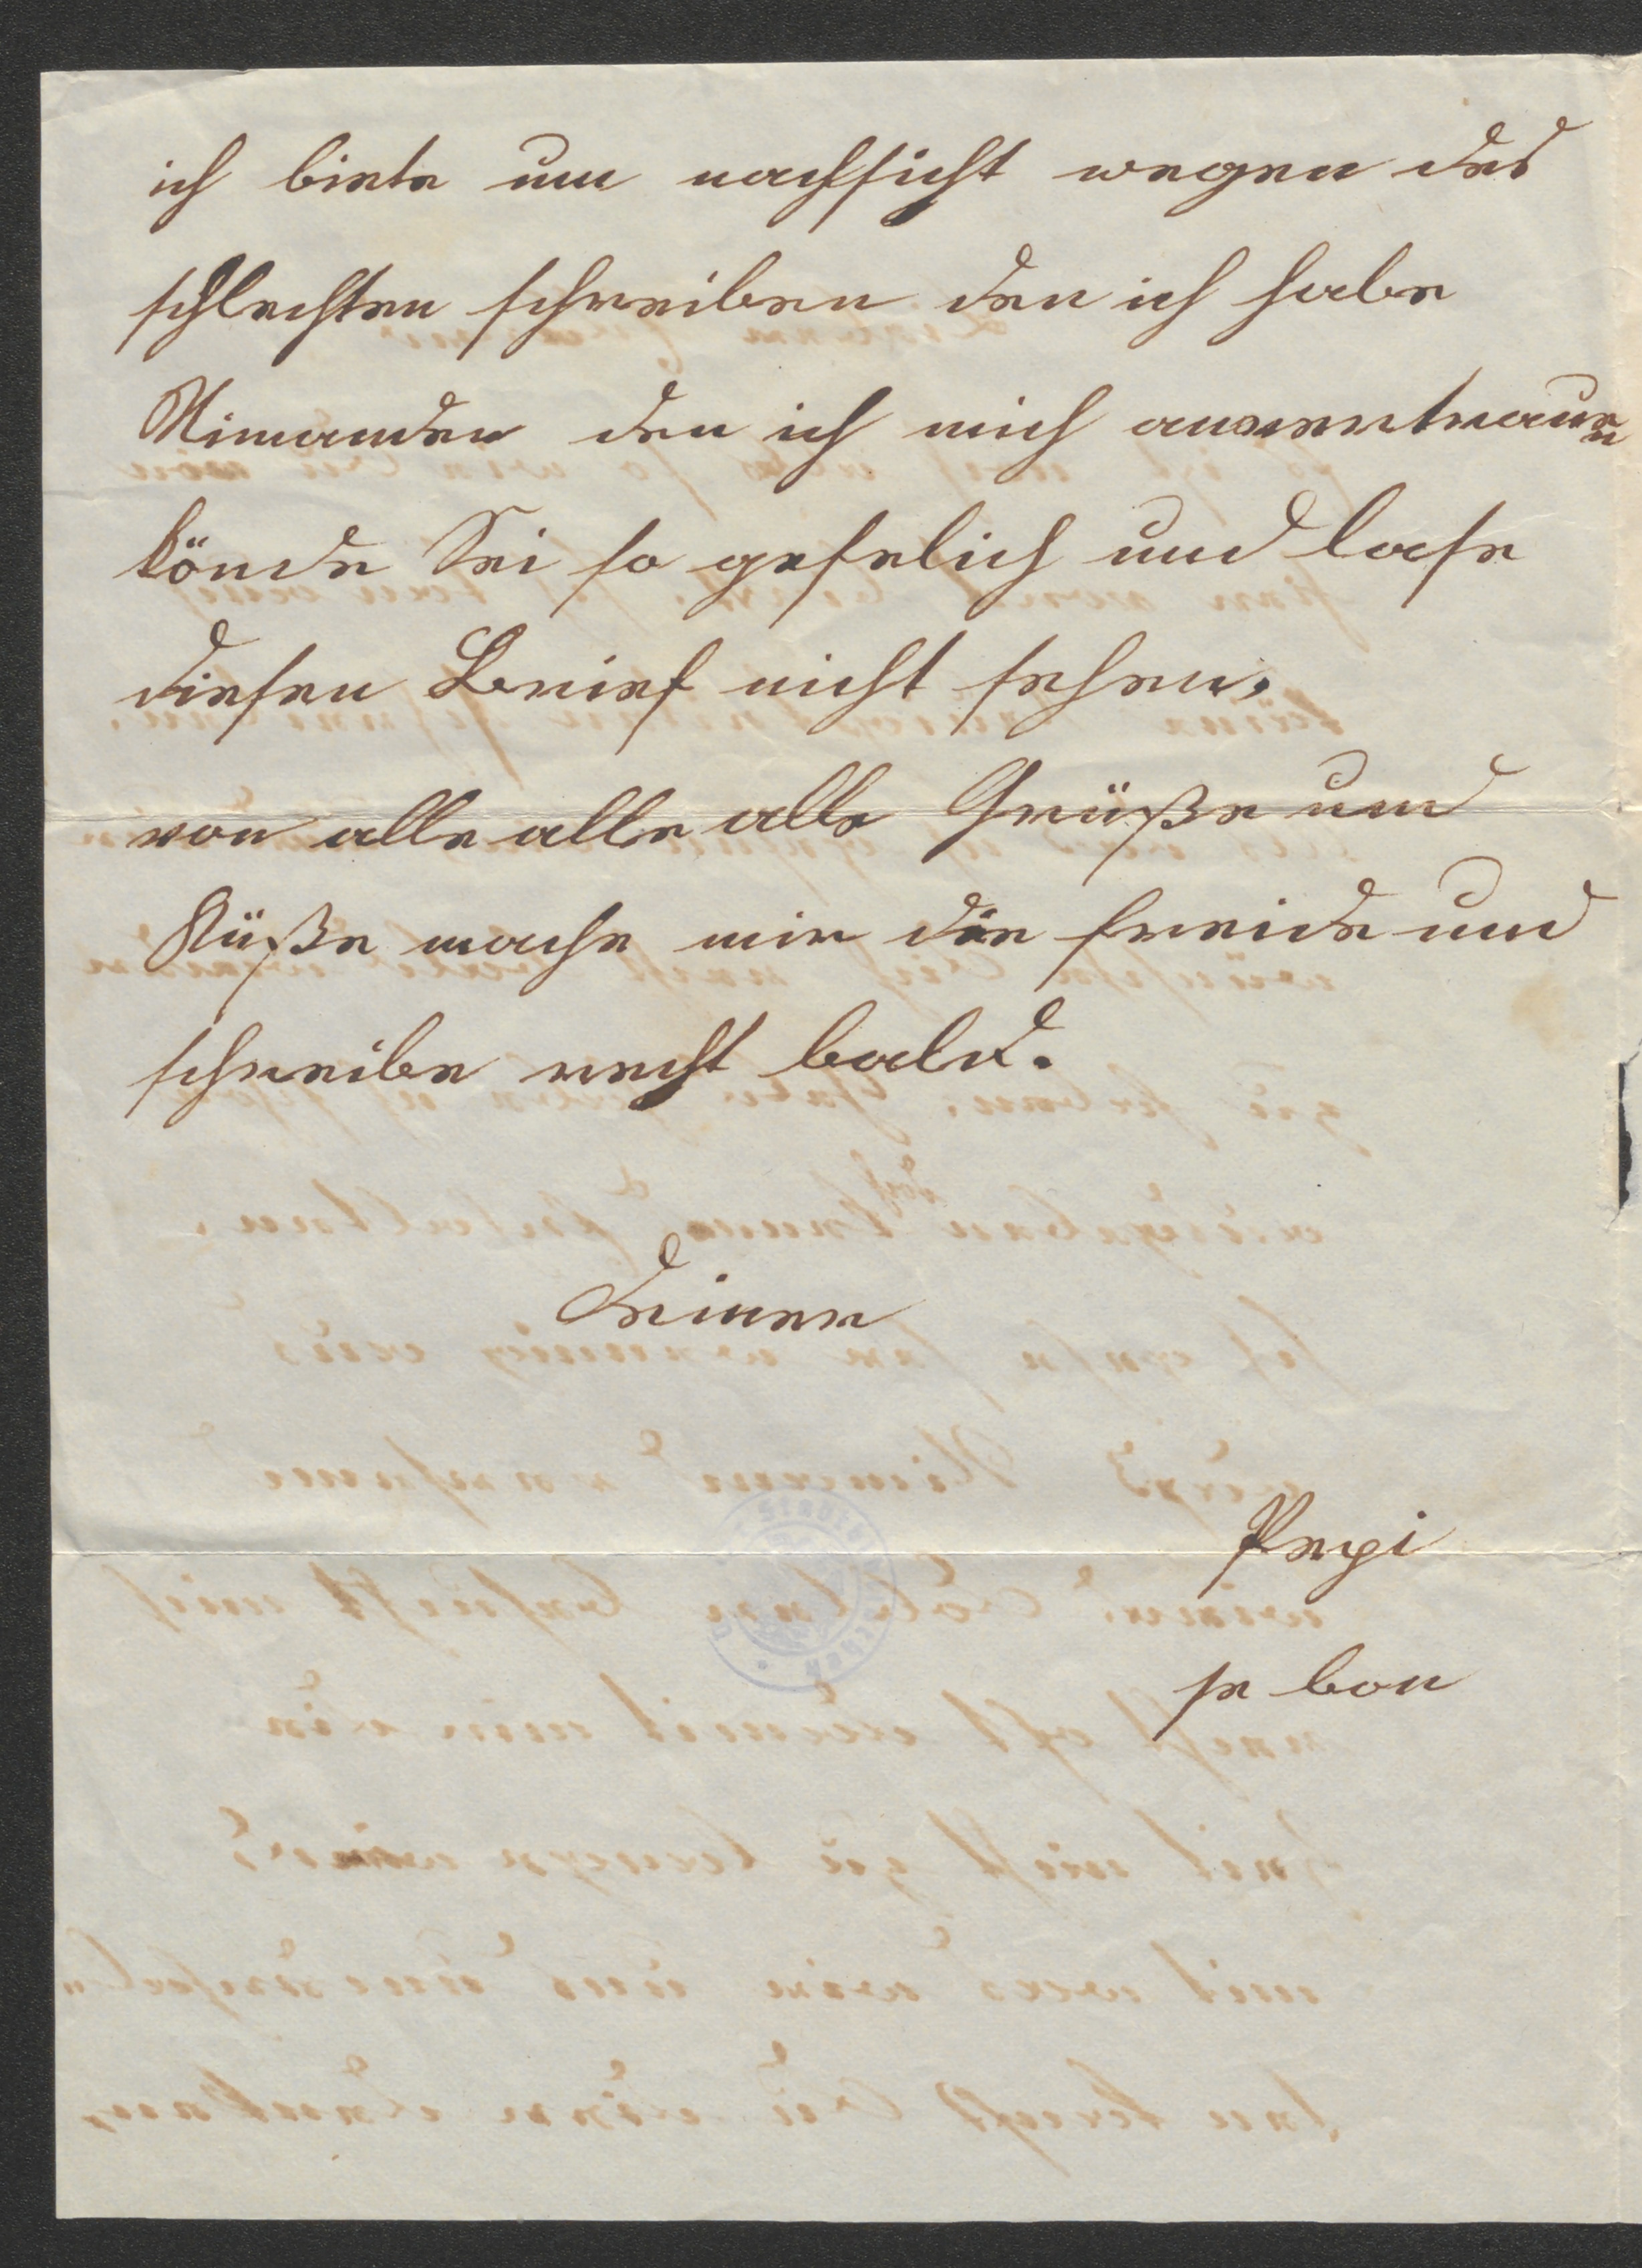 ich biete um nachsicht wegen des
schlechten schreiben den ich habe
Nimanden den ich mich anvertrauen
könde Sei so gefelich und lase
diesen Brief nicht sehen.
von alle alle alle Grüße und
Küße mache mir die freide und
schreibe recht bald.
Deiner
Pepi